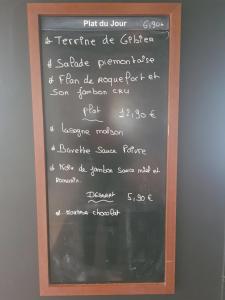 Plat du Jour 6,90€
* Terrine de Gibier
* Salade piemontaise
* Flan de Roquefort et
son jambon cru
plat 12,90 €
* lasagne maison
* Bavette Sauce Poivre
* Noix de jambon sauce miel et
Romarin.
Dessert 5,90 €
* chocolat